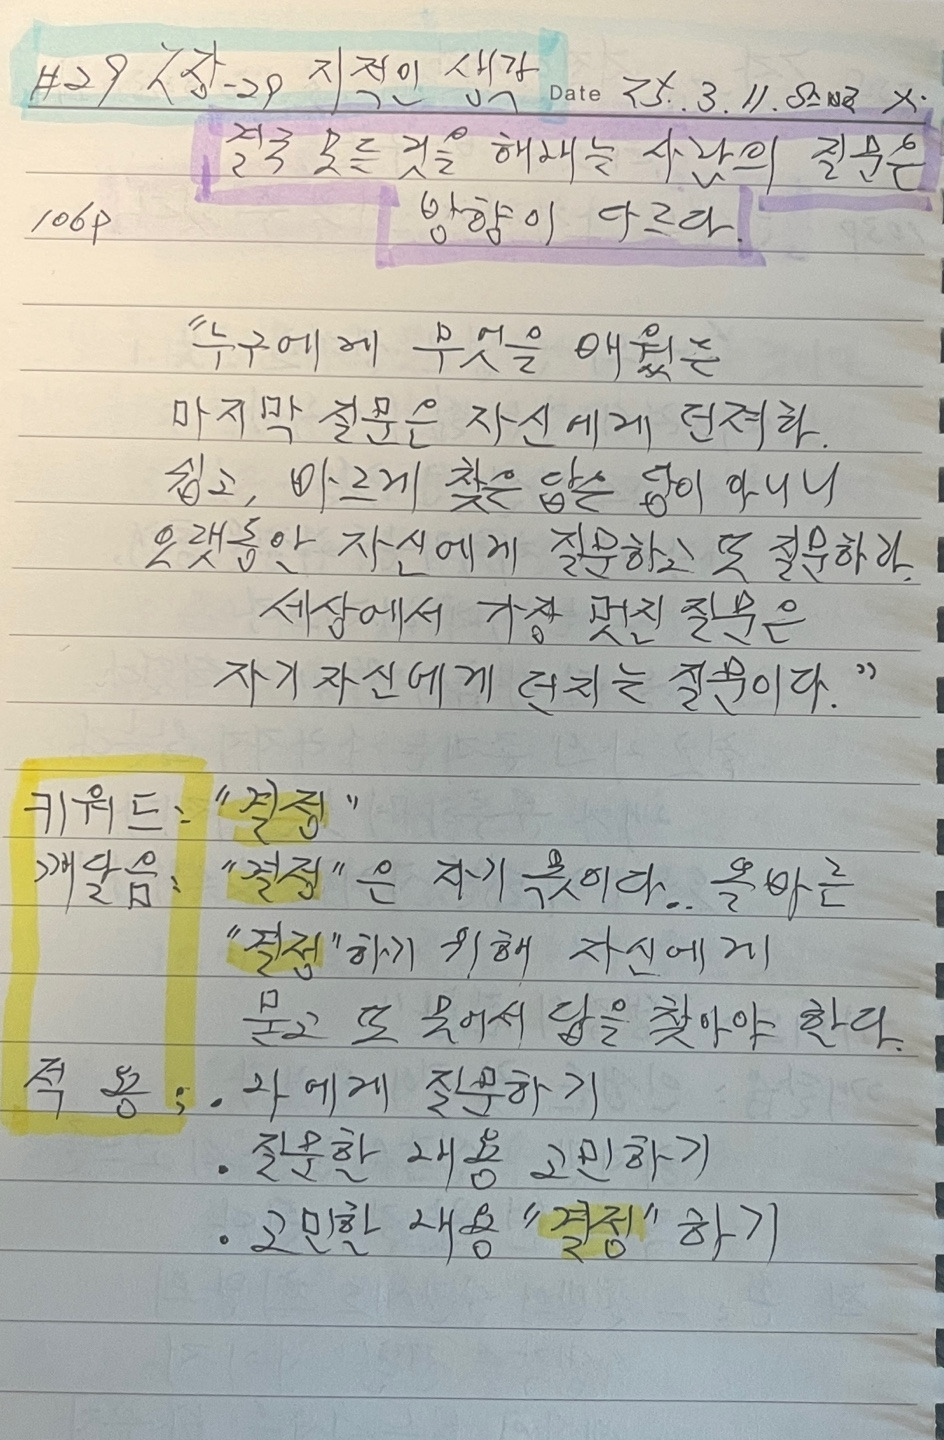 #29 긋장-29 지적인 생각 Date 25.3.11.
결국 모든 것을 해내는 사람의 질문은
106P 방향이 다르다.
"누구에게 무엇을 배웠든
마지막 질문은 자신에게 던져라.
쉽고, 빠르게 찾은 답은 답이 아니니
오랫동안 자신에게 질문하고 또 질문하라.
세상에서 가장 멋진 질문은
자기 자신에게 던지는 질문이다."
키워드: "결정"
깨달음: "결정"은 자기 몫이다.. 올바른
"결정"하기 위해 자신에게
묻고 또 물어서 답을 찾아야 한다.
적용: . 나에게 질문하기
. 질문한 내용 고민하기
. 고민한 내용 "결정" 하기